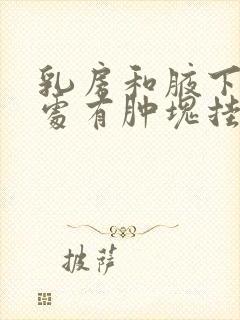 乳房和腋下
处有肿块挂
披萨